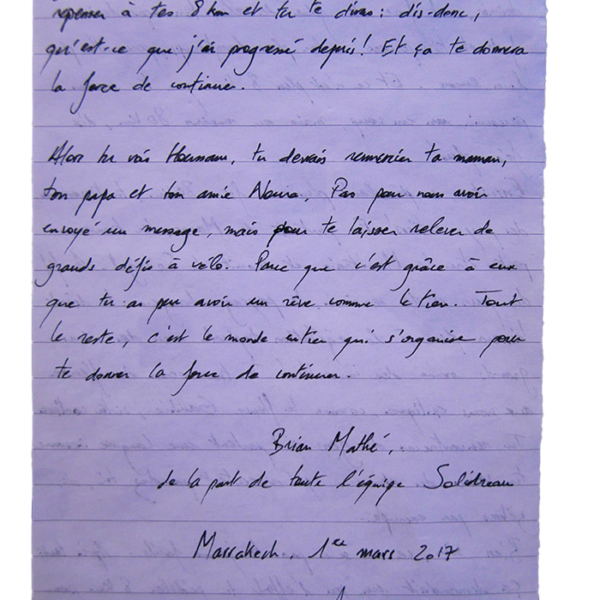 repenser à tes 8 km et tu te diras : dis-donc,
qu'est-ce que j'ai progressé depuis ! Et ça te donnera
la force de continuer.
Alors tu vois Houssam, tu devais remercier ta maman,
ton papa et ton amie Noura, Pas pour nous avoir
envoyé un message, mais pour te laisser relever de
grands défis à vélo. Parce que c'est grâce à eux
que tu as peu avoir un rêve comme le tien. Tout
le reste, c'est le monde entier qui s'organise pour
te donner la force de continuer.
Brian Mathé,
de la part de toute l'équipe Solidream
Marrakech, 1er mars 2017